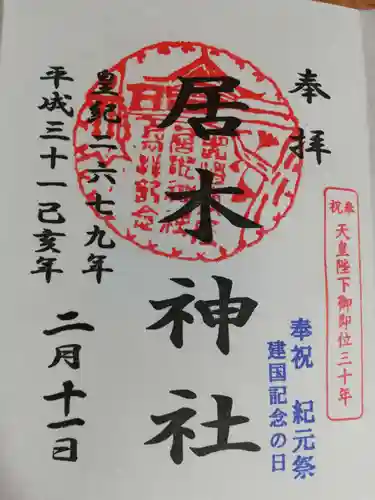 奉拝
奉祝 天皇陛下御即位三十年
奉祝 紀元祭
建国記念の日
居木神社
皇紀二六七九年
平成三十一己亥年
二月十一日